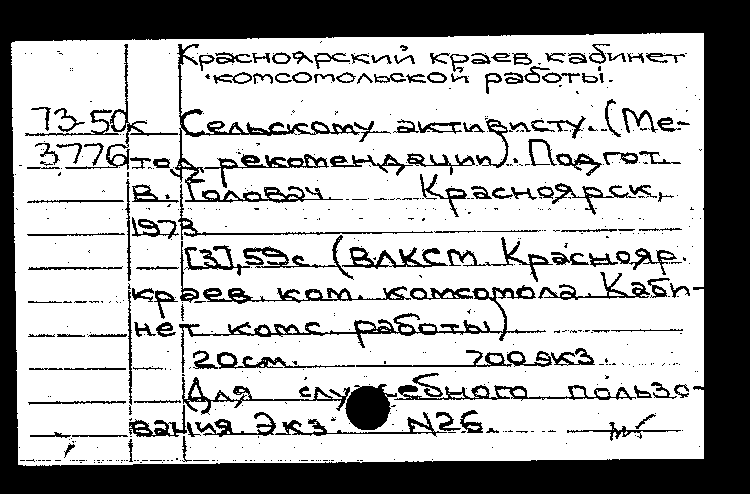 Красноярский краев. кабинет
комсомольской работы.
73-50к Сельскому активисту. (Ме-
3776 тод. рекомендации). Подгот.
В. Головач. Красноярск,
1973
[3], 59 с. (ВЛКСМ. Краснояр.
краев. ком. комсомола. Каби-
нет комс. работы)
20 см. 700 экз.
Для служебного пользо-
вания. Экз. N26.